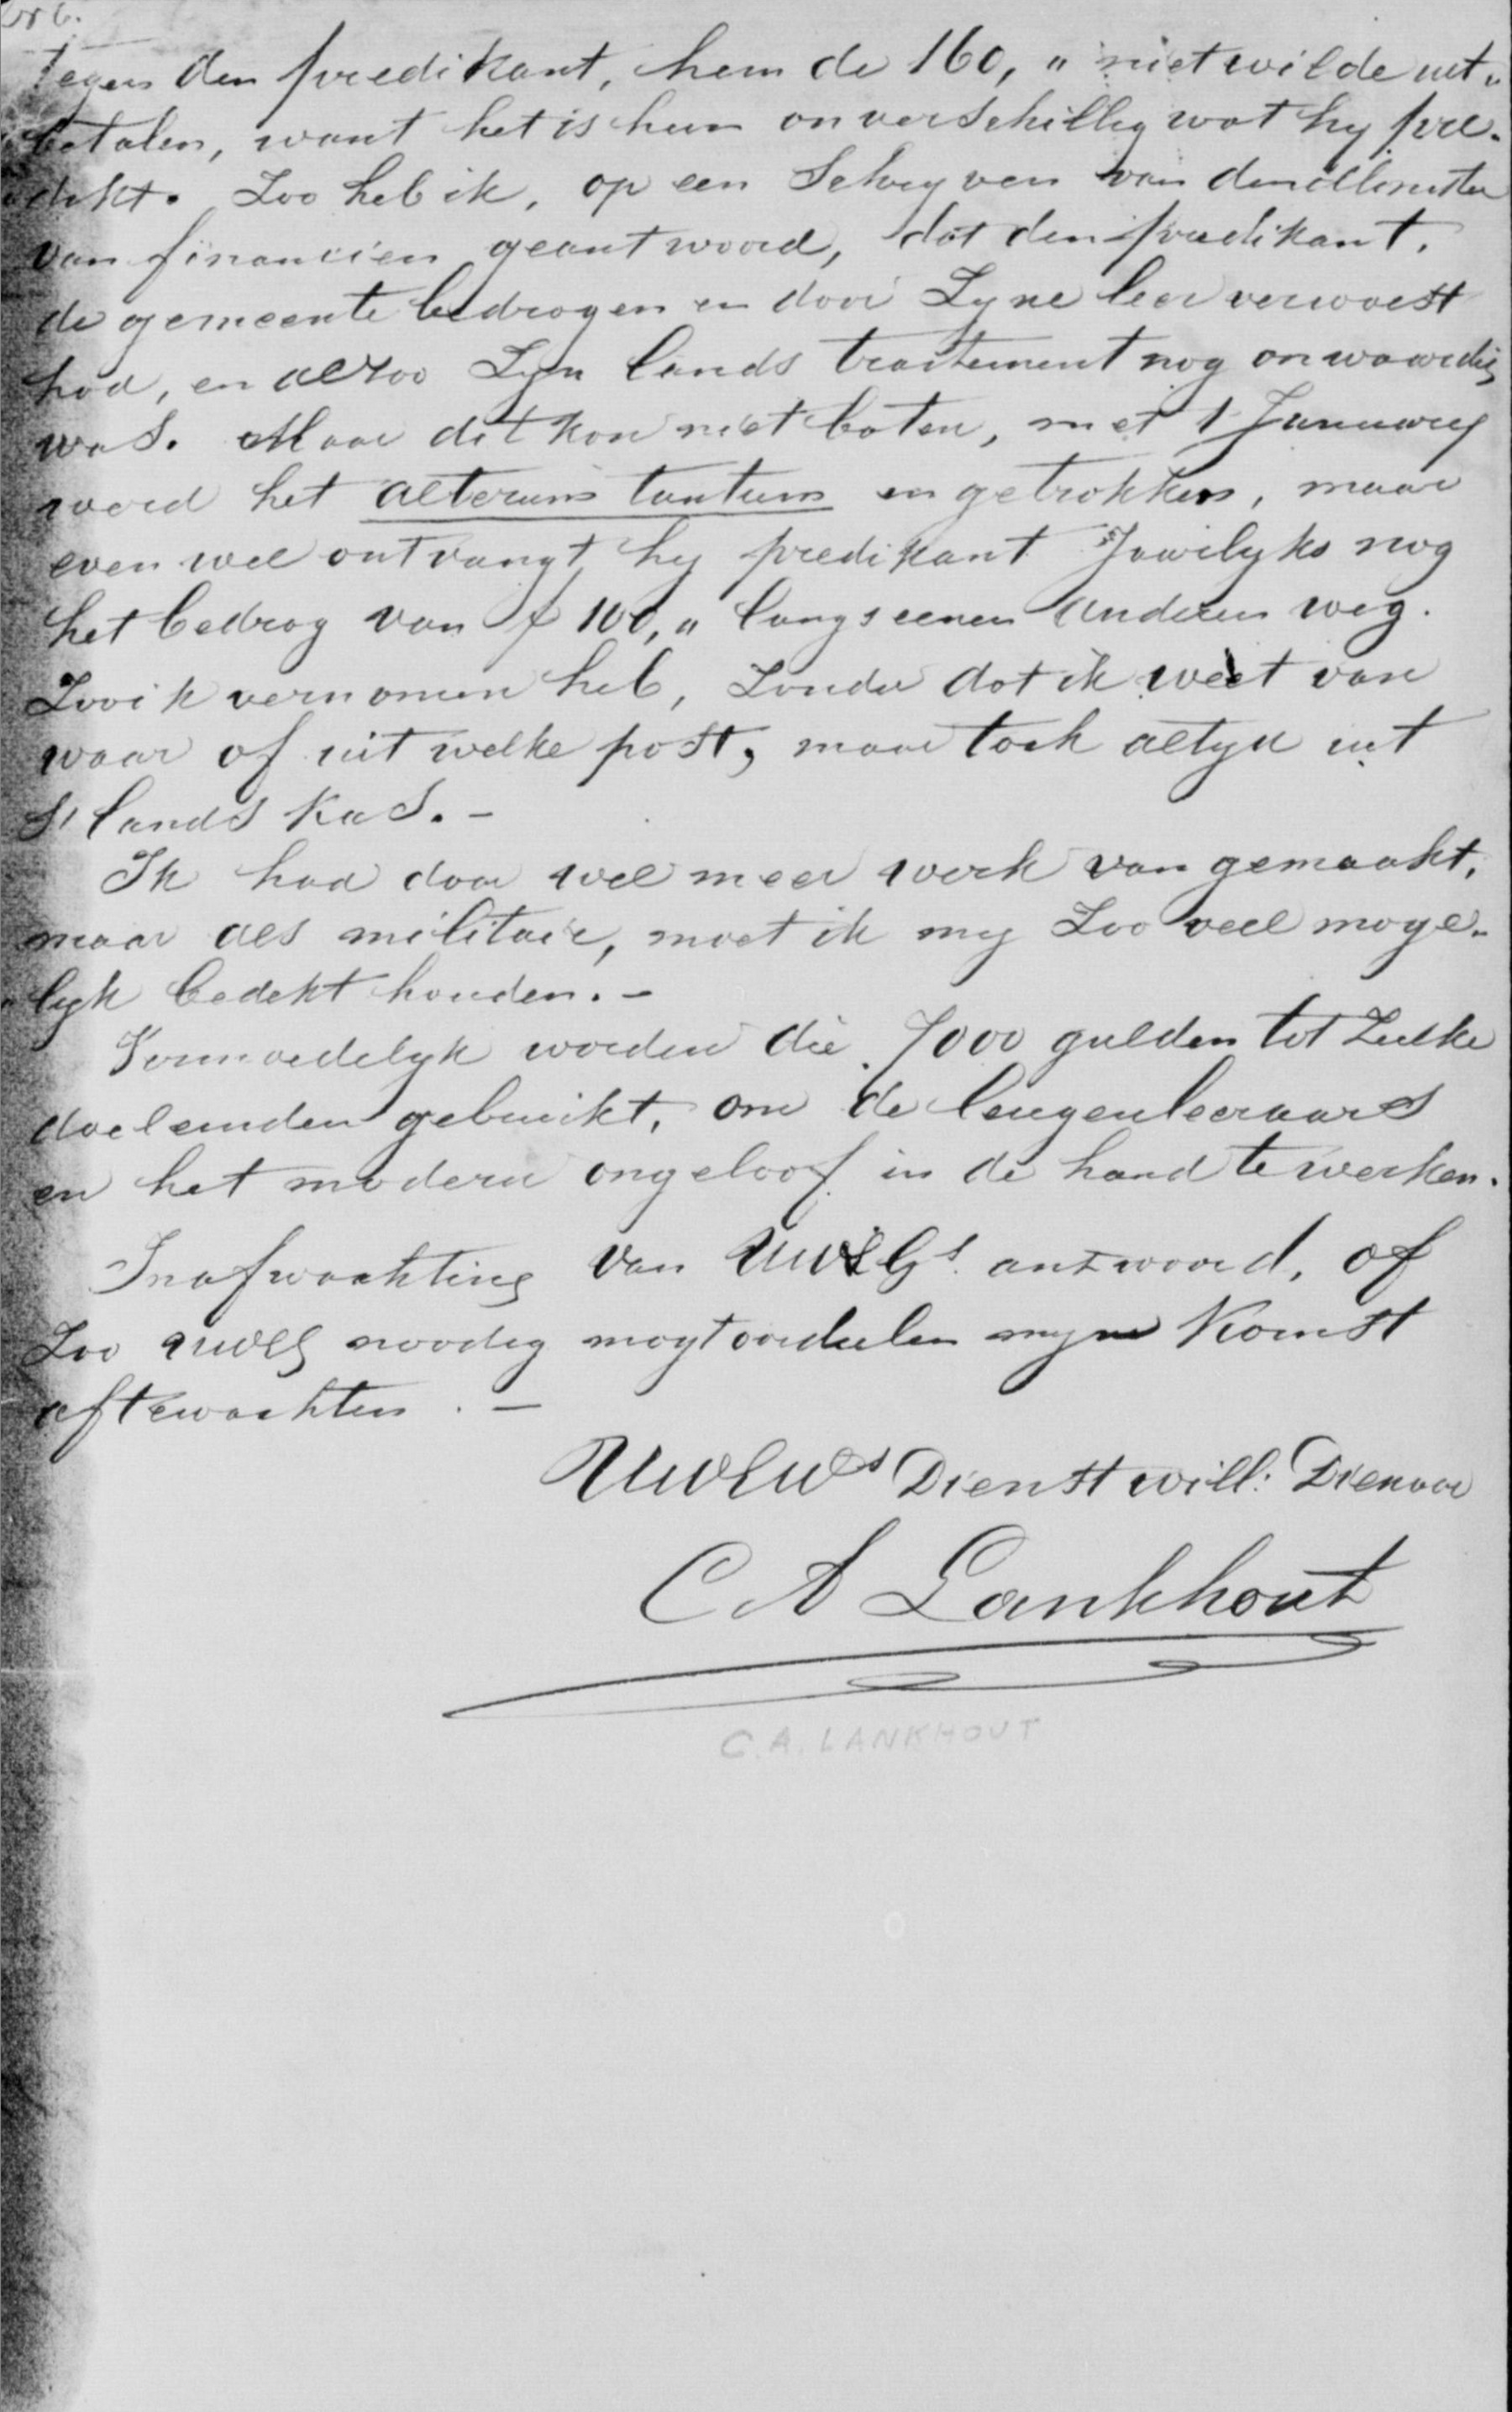 tegen den predikant, hem de 160, " niet wilde uit"
betalen, want het is hun onverschillig wat hy pre-
dikt. Zoo heb ik, op een Schryven van den Minister
van financien geantwoord, dat den predikant,
de gemeente bedrogen en door Zyne leer verwoest
had, en alzoo Zyn lands tractement nog onwaardig
was. Maar dit kon niet baten, met 1 January
werd het alterum tantum ingetrokken, maar
even wel ontvangt hy predikant Jaarlyks nog
het bedrag van f 100, " langs eenen anderen weg.
Zoo ik vernomen heb, Zonder dat ik weet van
waar of uit welke post, maar toch altyd uit
S' lands Kas. -
Ik had daar wel meer werk van gemaakt,
maar als militair, moet ik my Zoo veel moge-
"lyk bedekt houden. -
Vermoedelyk worden die 7000 gulden tot Zulke
doeleinden gebruikt, om de leugenleeraars
en het modern ongeloof in de hand te werken.
In afwachting van UWEGs antwoord, of
Zoo UWEG noodig mogt oordeelen myne Komst
aftewachten . -
UWEWs Dienstwill: Dienaar
C A Lankhout
C.A. LANKHOUT